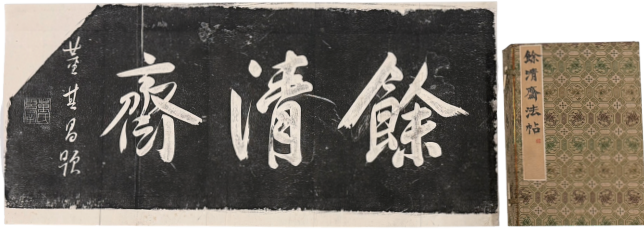 餘清齋
董其昌題
餘清齋法帖